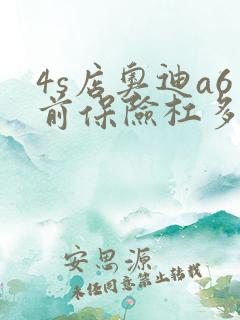 4s店奥迪a6
前保險杠多
安思源
未经同意禁止转载